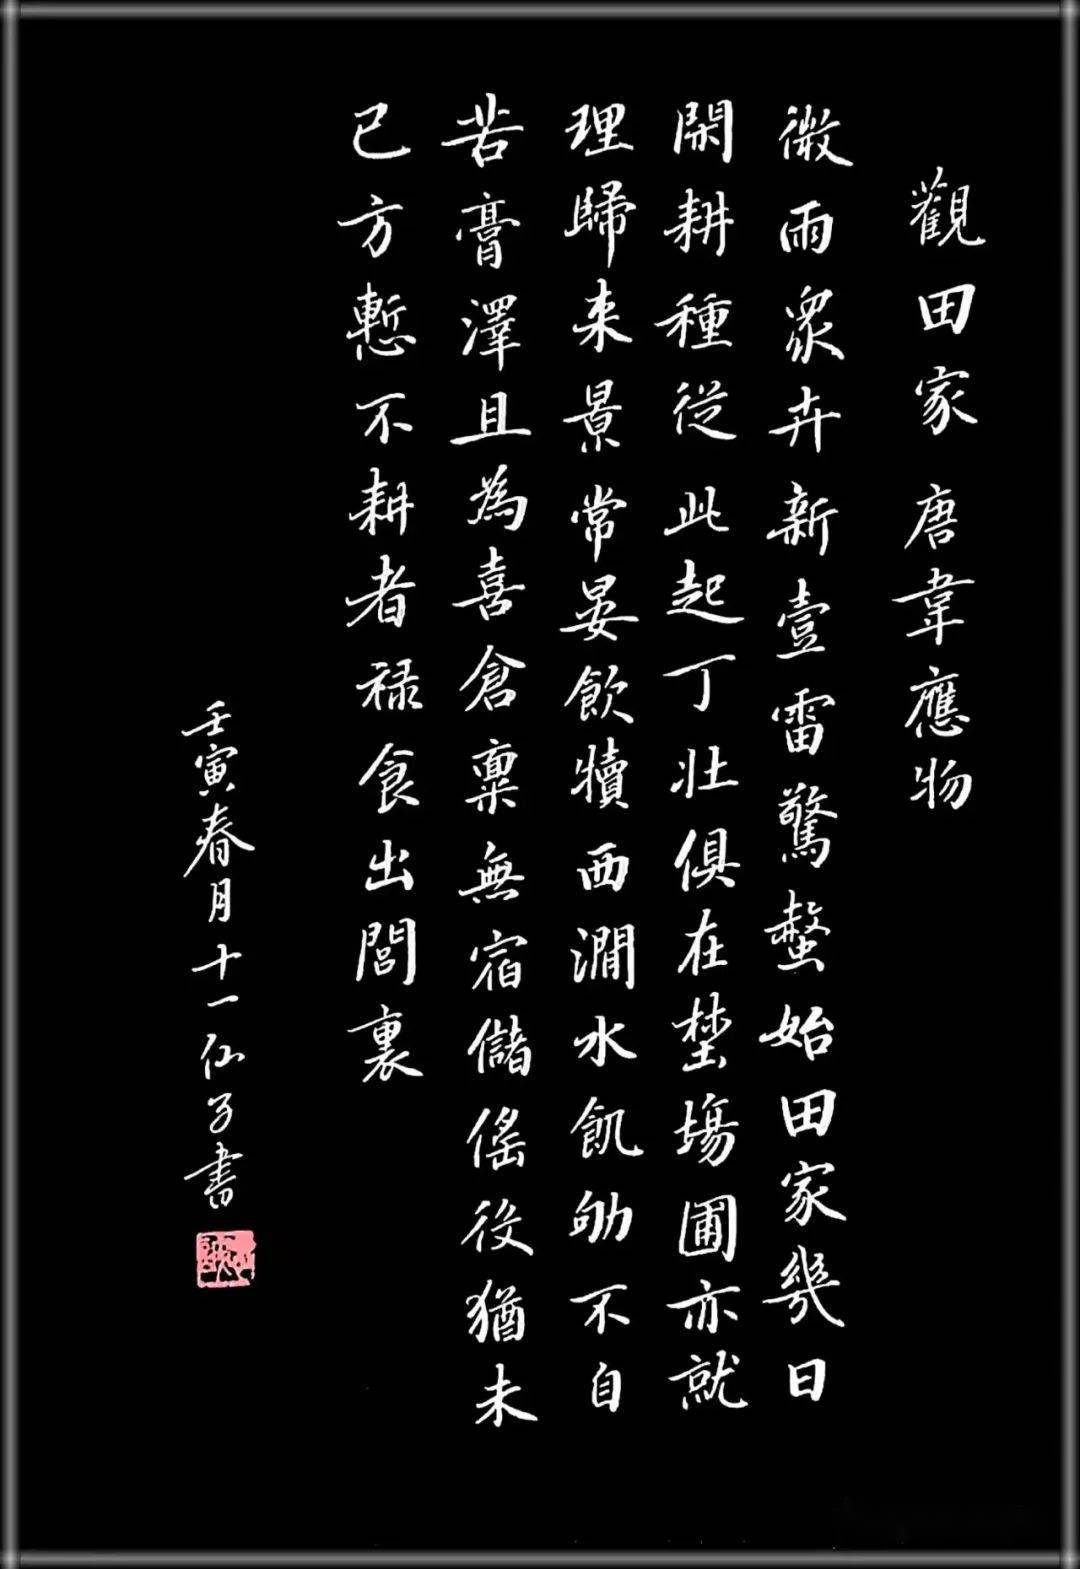 觀田家 唐韋應物
微雨眾卉新壹雷驚蟄始田家幾日
閑耕種從此起丁壯俱在埜塲圃亦就
理歸來景常晏飲犢西澗水飢劬不自
苦膏澤且為喜倉稟無宿儲傜役猶未
已方慙不耕者禄食出閭裏
壬寅春月十一仙子書